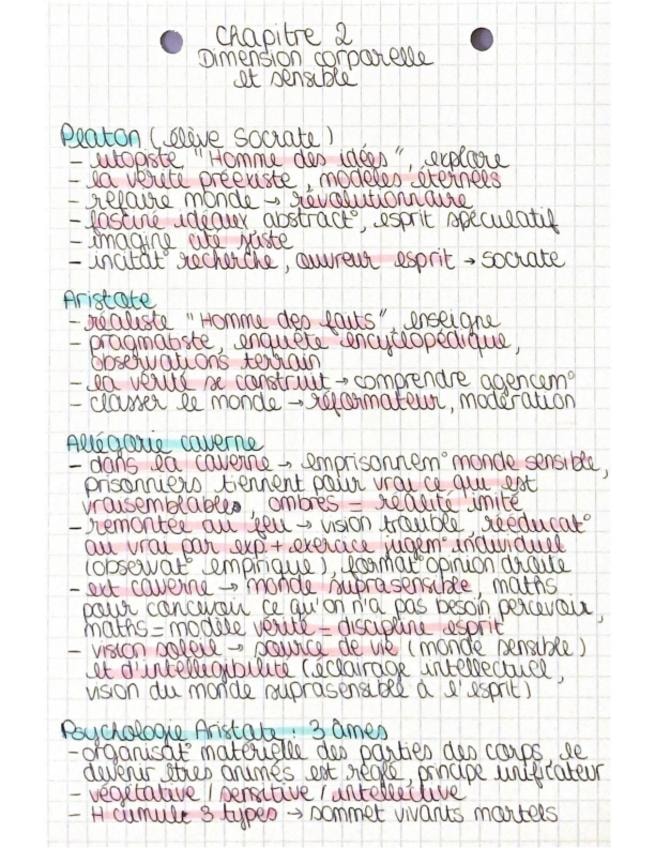 Chapitre 2
Dimension corporelle
et sensible
Platon (élève Socrate)
- utopiste "Homme des idées", explore
- la vérité préexiste, modèles éternels
- refaire monde → révolutionnaire
- fasciné idéaux abstract°, esprit spéculatif
- imagine cité juste
- incitat° recherche, ouvreur esprit → socrate
Aristote
- réaliste "Homme des faits", enseigne
- pragmatiste, enquête encyclopédique,
observations terrain
- la vérité se construit → comprendre agencem°
- classer le monde → réformateur, modération
Allégorie caverne
- dans la caverne → emprisonnem° monde sensible,
prisonniers tiennent pour vrai ce qui est
vraisemblable, ombres = réalité imité
- remontée au feu → vision trouble, rééducat°
au vrai par exp + exercice jugem° individuel
(observat° empirique), format° opinion droite
- ext caverne → monde suprasensible, maths
pour concevoir ce qu'on n'a pas besoin percevoir,
maths = modèle vérité = discipline esprit
- vision soleil → source de vie (monde sensible)
et d'intelligibilité (éclairage intellectuel,
vision du monde suprasensible à l'esprit)
Psychologie Aristote : 3 âmes
- organisat° matérielle des parties des corps, le
devenir êtres animés est réglé, principe unificateur
- végétative / sensitive / intellective
- H cumule 3 types → sommet vivants mortels